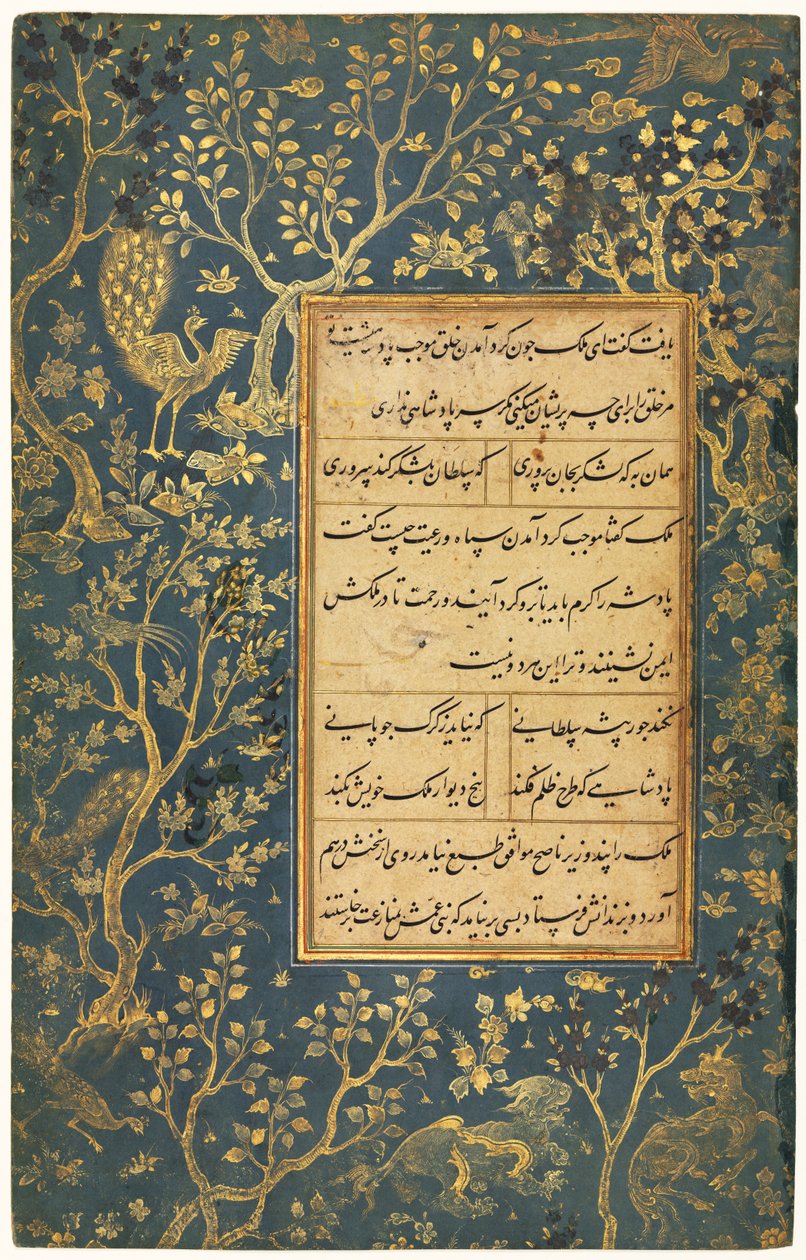 یافت گفت ای ملک جون کرد آمدن خلق موجب پادشاهیست تو
مر خلق را برای چه پریشان میکنی مکر سر پادشاهی نداری
همان به که لشکر بجان پروری که سلطان بلشکر کند سروری
ملک کفتا موجب کرد آمدن سپاه و رعیت چیست کفت
پادشه را کرم باید تا برو کرد آیند و رحمت تا در ملکش
ایمن نشینند و ترا این هر دو نیست
نکند جور پیشه سلطانی که نیاید ز کرک جوپانی
پادشاهی که طرح ظلم فکند بیخ دیوار ملک خویش بکند
ملک را پند وزیر ناصح موافق طبع نیامد روی از سخنش درهم
آورد و بزندانش فرستاد بسی برنیامد که بنی عمش بمنازعت برخاستند